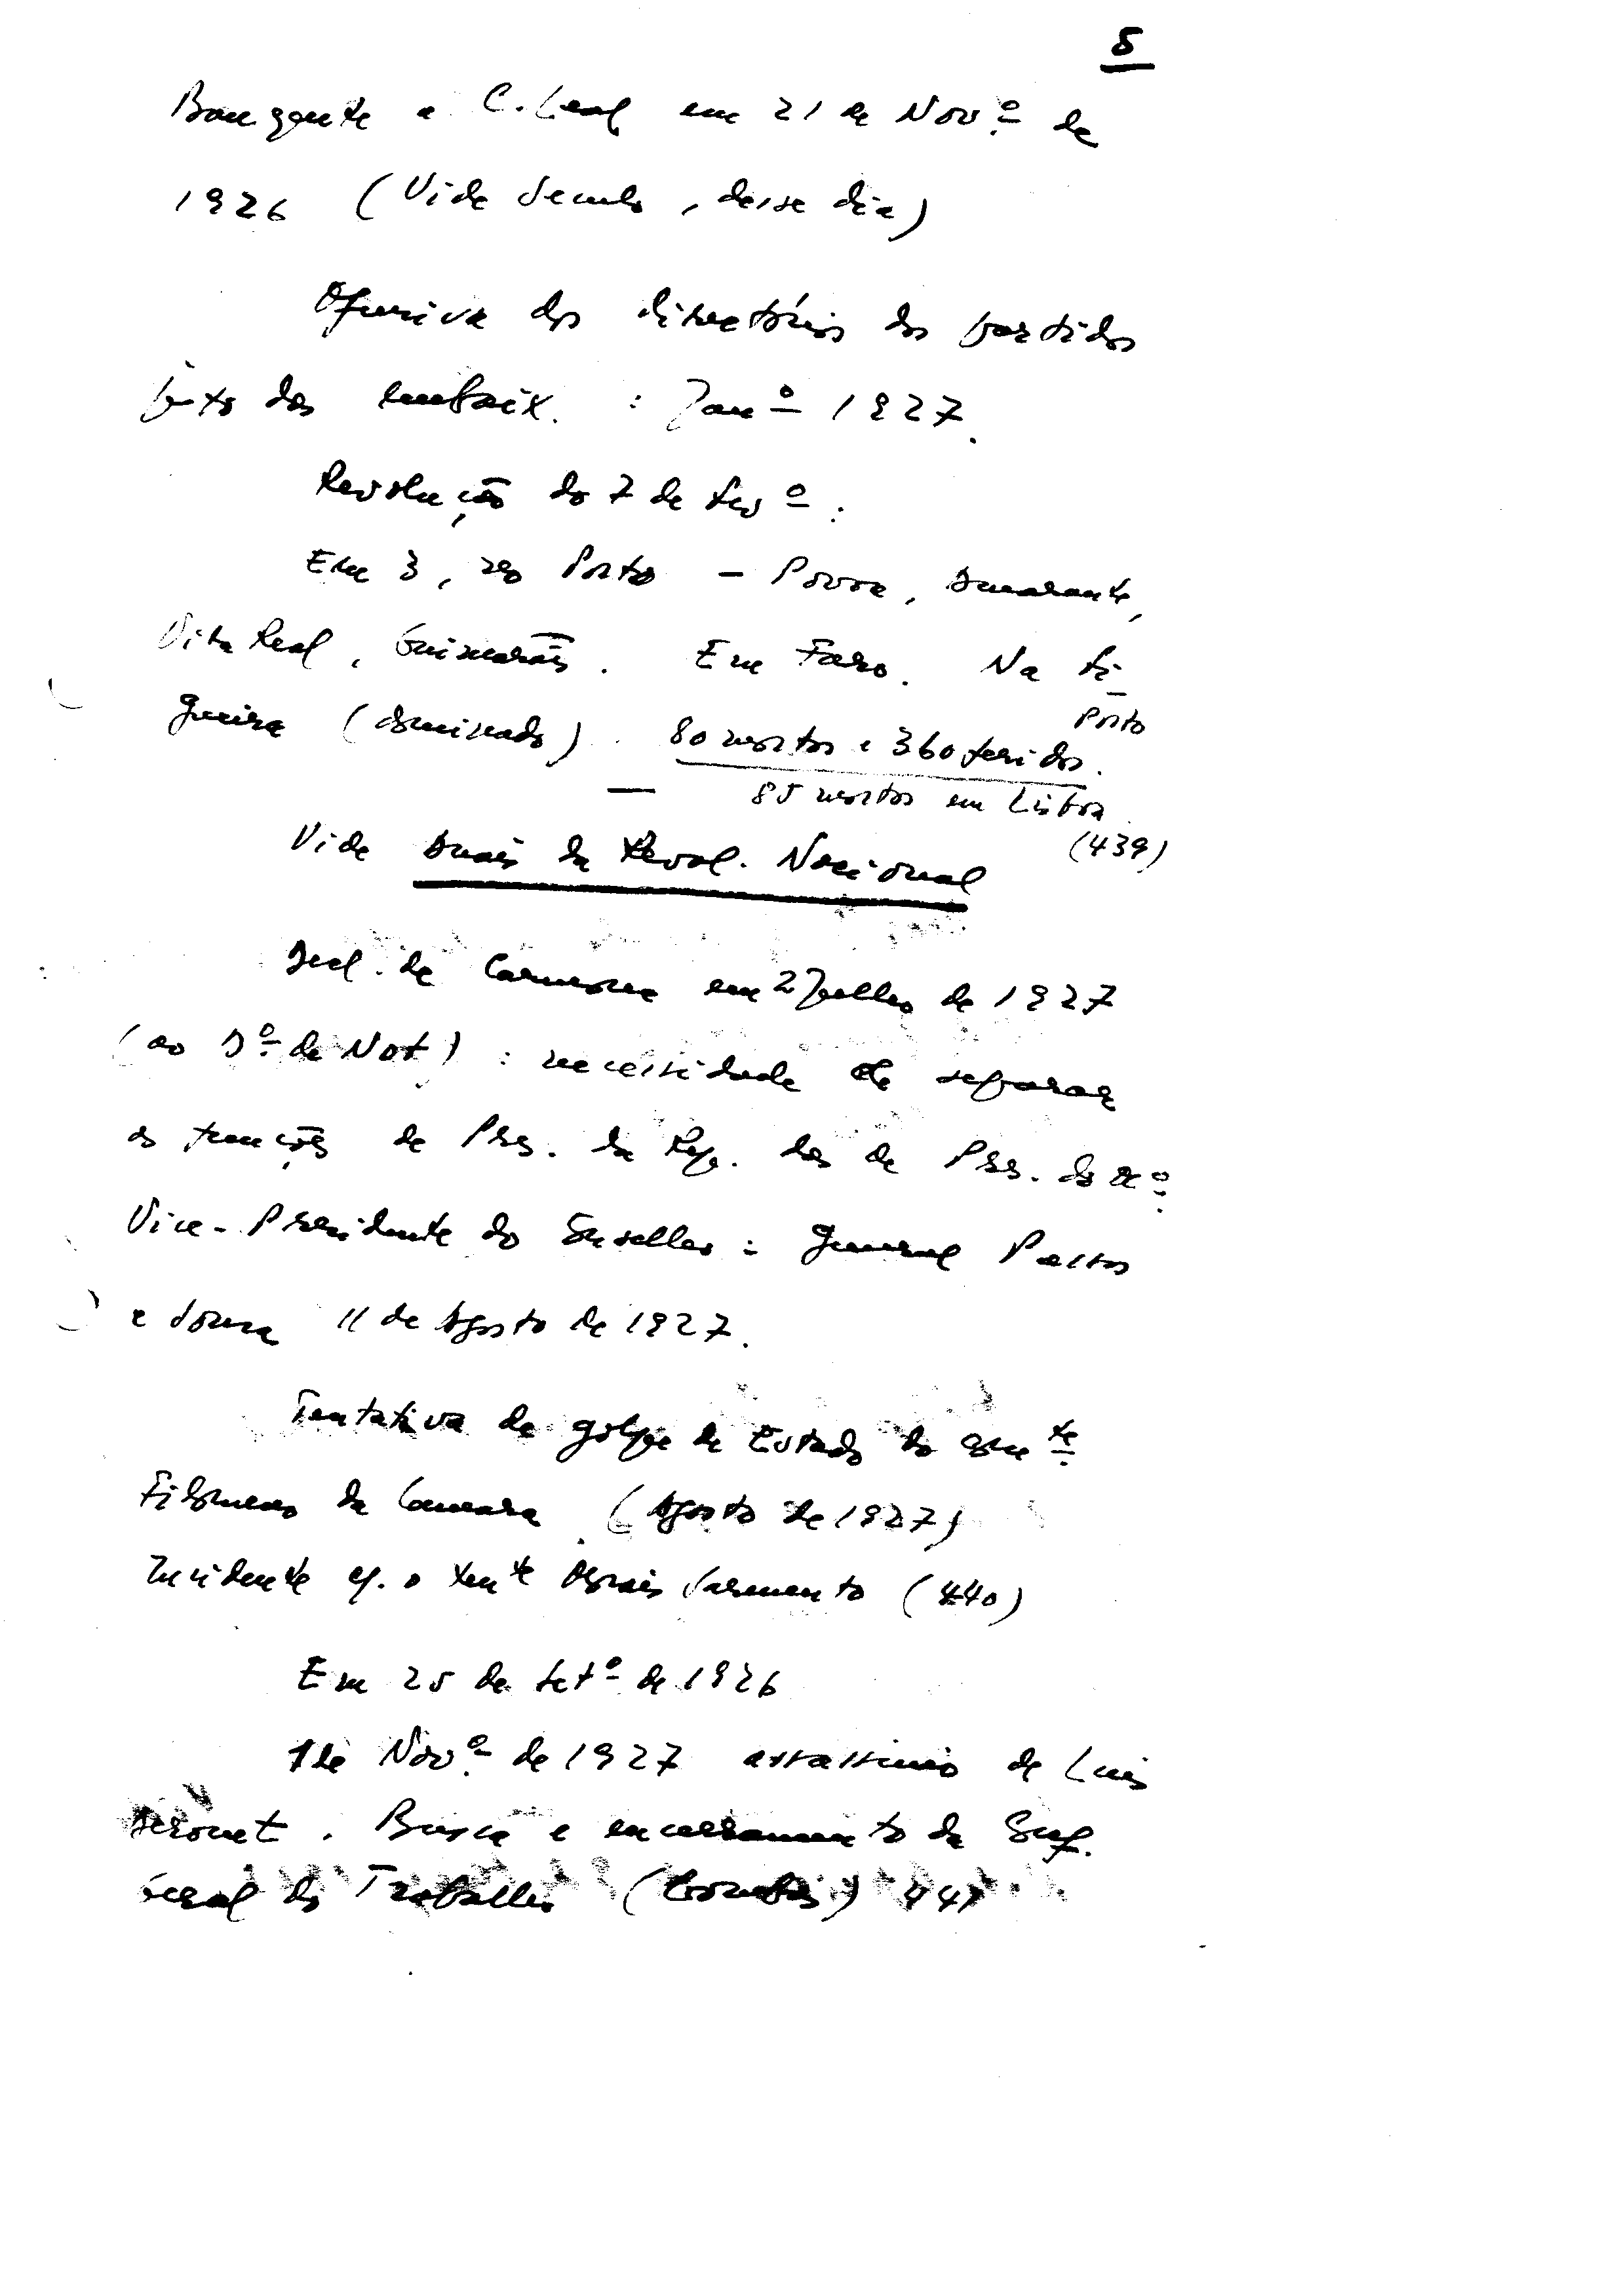 5
e C. Leal em 21 de Nov.º de
1926 (Vide Seculo, desse dia)
Ofensiva dos directórios dos partidos
junto das embaix. : Janº 1927.
Revolução do 7 de Fevº :
Em 3, no Porto – Povoa, Amarante,
Vila Real, Guimarães. Em Faro. Na Fi-
gueira (dominado). 80 mortos e 360 feridos.
Porto
— 85 mortos em Lisboa
(439)
Vide Anais da Revol. Nacional
Decl. de Carmona em 2 Julho de 1927
(ao Dº de Not) : necessidade de separar
as funções de Pres. da Rep. das de Pres. do
Vice-Presidente do Conselho : General Passos
e Sousa 11 de Agosto de 1927.
Tentativa de golpe de Estado do
Filomeno da Camara (Agosto de 1927)
Incidente c/. o tenᵗᵉ Morais Sarmento (440)
Em 25 de Setº de 1926
1 de Nov.º de 1927 assassinio de Luis
Derouet. Busca e encerramento da Conf.
Geral do Trabalho